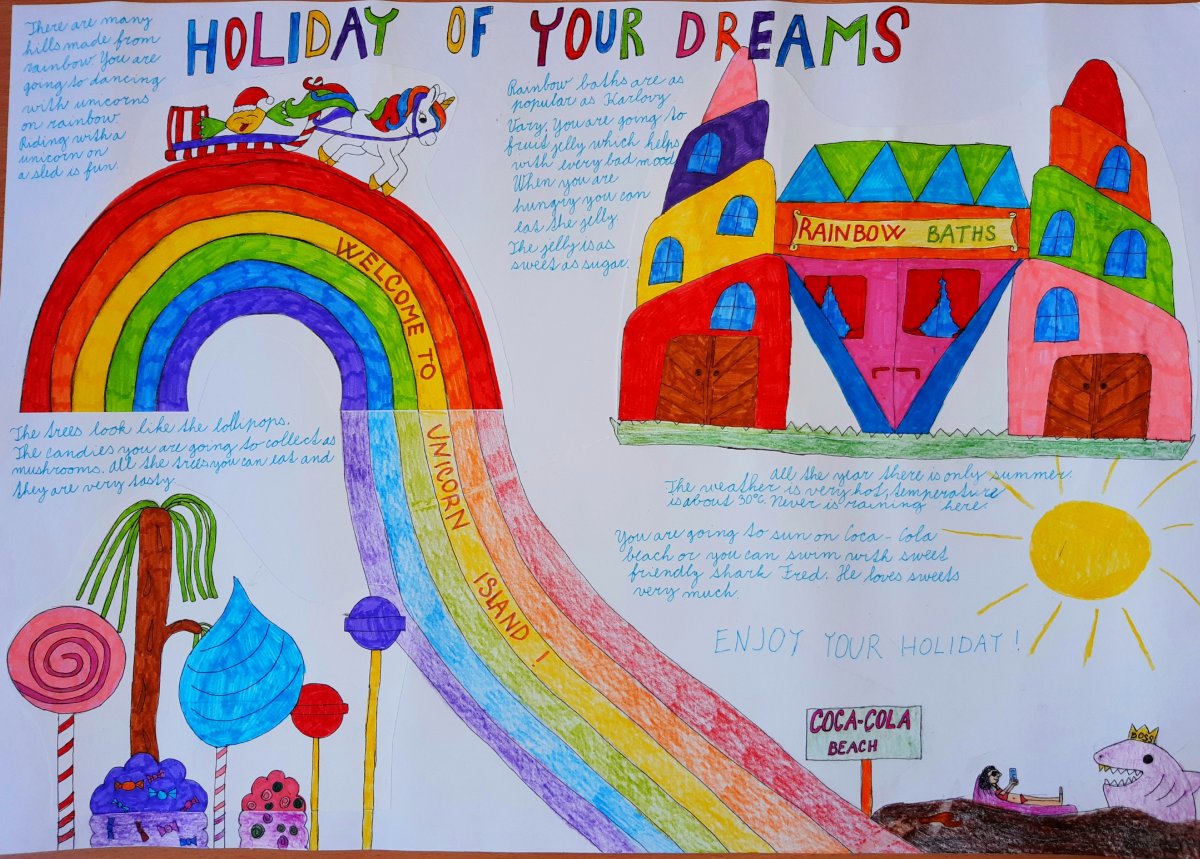 HOLIDAY OF YOUR DREAMS
There are many
hills made from
rainbow. You are
going to dancing
with unicorns
on rainbow.
Riding with a
unicorn on
a sled is fun.
Rainbow baths are as
popular as Karlovy
Vary. You are going to
fruit jelly which helps
with every bad mood.
When you are
hungry you can
eat the jelly.
The jelly is as
sweet as sugar.
RAINBOW BATHS
WELCOME TO
UNICORN
ISLAND!
The trees look like the lollipops.
The candies you are going to collect as
mushrooms. All the trees you can eat and
they are very tasty.
All the year there is only summer.
The weather is very hot, temperature
is about 30°C. Never is raining here.
You are going to sun on Coca-Cola
beach or you can swim with sweet
friendly shark Fred. He loves sweets
very much.
ENJOY YOUR HOLIDAY!
COCA-COLA
BEACH
BOSS